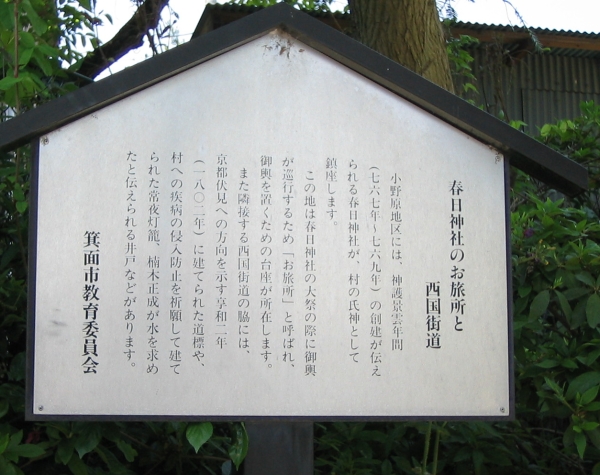 春日神社のお旅所と
西国街道
小野原地区には、神護景雲年間
（七六七年～七六九年）の創建が伝え
られる春日神社が、村の氏神として
鎮座します。
この地は春日神社の大祭の際に御輿
が巡行するため「お旅所」と呼ばれ、
御輿を置くための台座が所在します。
また隣接する西国街道の脇には、
京都伏見への方向を示す享和二年
（一八〇二年）に建てられた道標や、
村への疾病の侵入防止を祈願して建て
られた常夜灯籠、楠木正成が水を求め
たと伝えられる井戸などがあります。
箕面市教育委員会